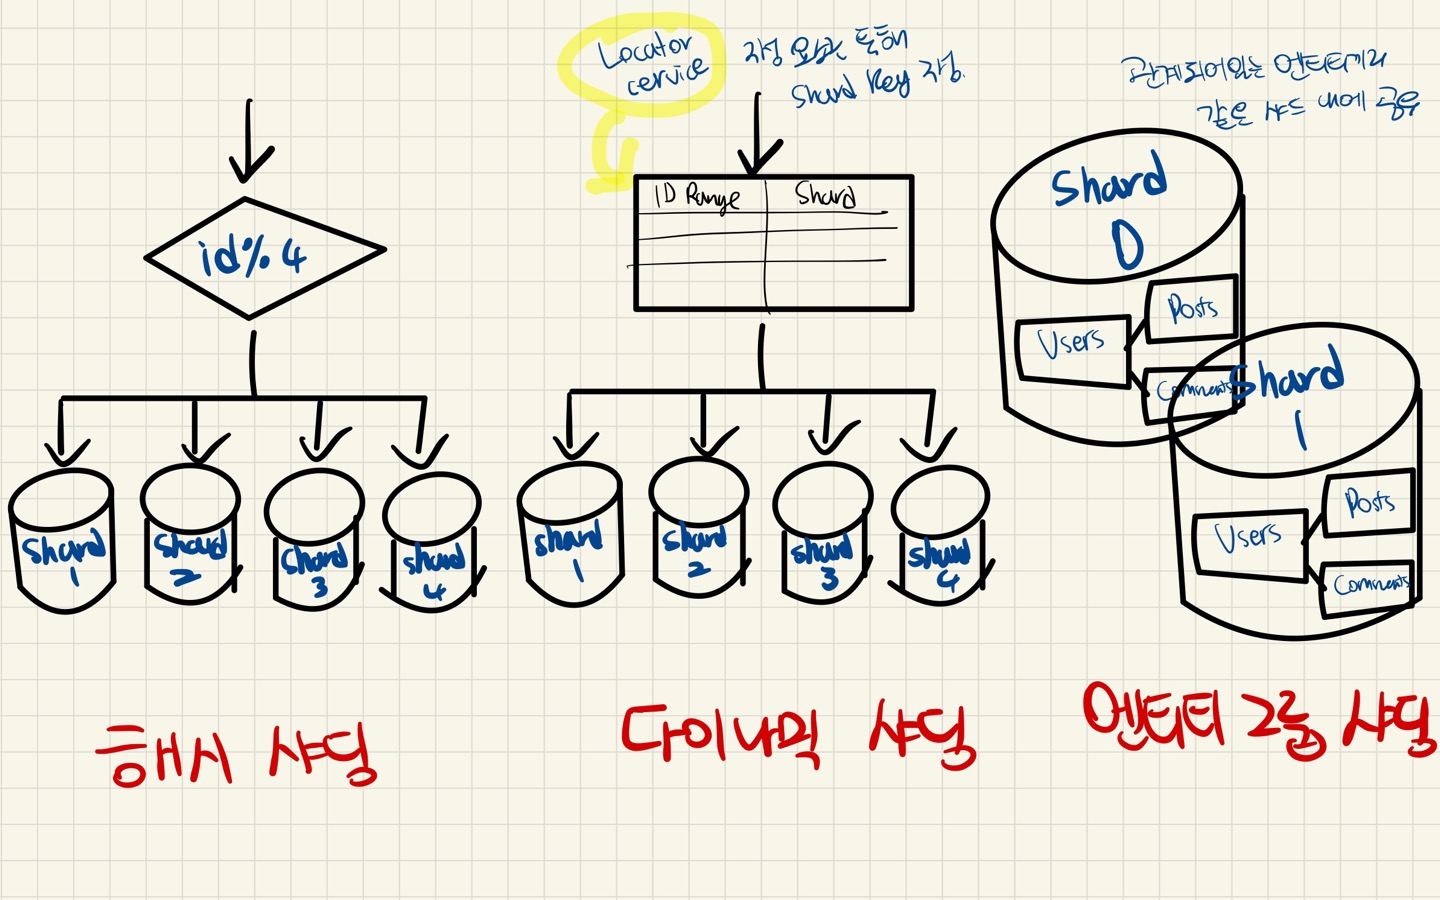 id% 4
Shard
1
Shard
2
Shard
3
Shard
4
해시 샤딩
Locator
cervice
통해
Shard Key 지정.
ID Range Shard
Shard
1
Shard
2
Shard
3
Shard
4
다이나믹 샤딩
관계되어있는 엔티티끼리
같은 샤드 내에 공유
Shard
0
Users
Posts
Comments
Shard
1
Users
Posts
Comments
엔티티 그룹 샤딩